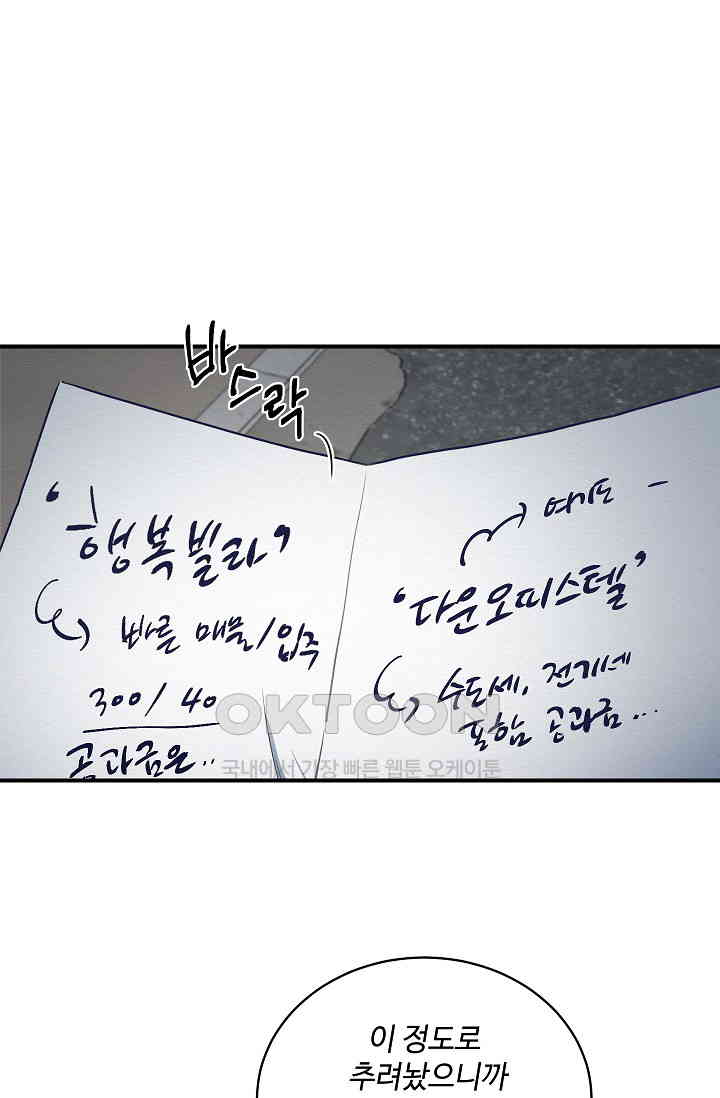 바스락
'행복빌라'
빠른 매물/입주
300/40
공과금은..
여기도 -
'다운오피스텔'
수도세, 전기세
포함 공과금...
OKTOON
국내에서 가장 빠른 웹툰 오케이툰
이 정도로
추려놨으니까